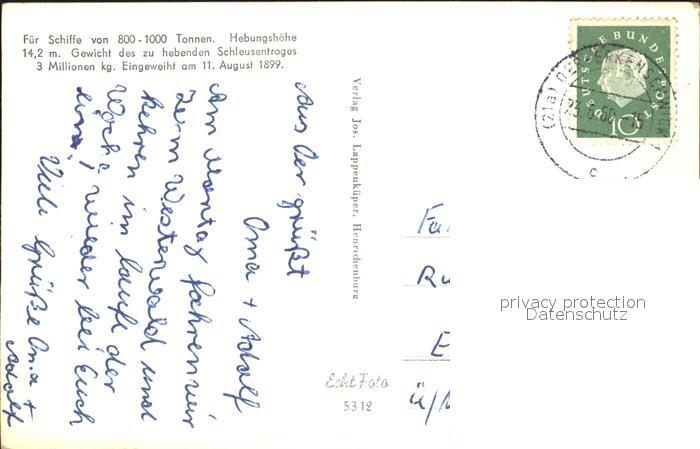 Für Schiffe von 800-1000 Tonnen. Hebungshöhe
14,2 m. Gewicht des zu hebenden Schleusentroges
3 Millionen kg. Eingeweiht am 11. August 1899.
Aus der grüßt
Oma + Adolf
Am Montag fahren wir
zum Westerwald und
kehren im laufe der
Woche wieder bei Euch
ein.
Viele Grüße Oma +
Adolf
Verlag Jos. Lappenküper, Henrichenburg
Echt Foto
5312
DEUTSCHE BUNDESPOST
10
(21a)
60
15
c
Fa
Ru
E
ü/
privacy protection
Datenschutz